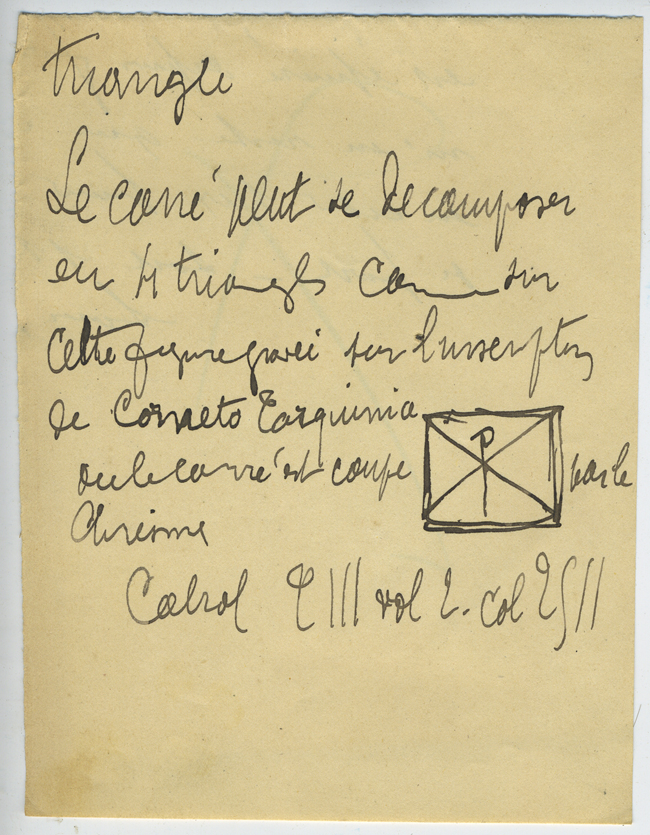 triangle
Le carré peut se decomposer
en 4 triangles comme sur
cette figure gravée sur l'inscription
de Corneto Tarquinia
ou le carré est coupé par le
Chrisme
Cabrol T III vol 2. col 2511